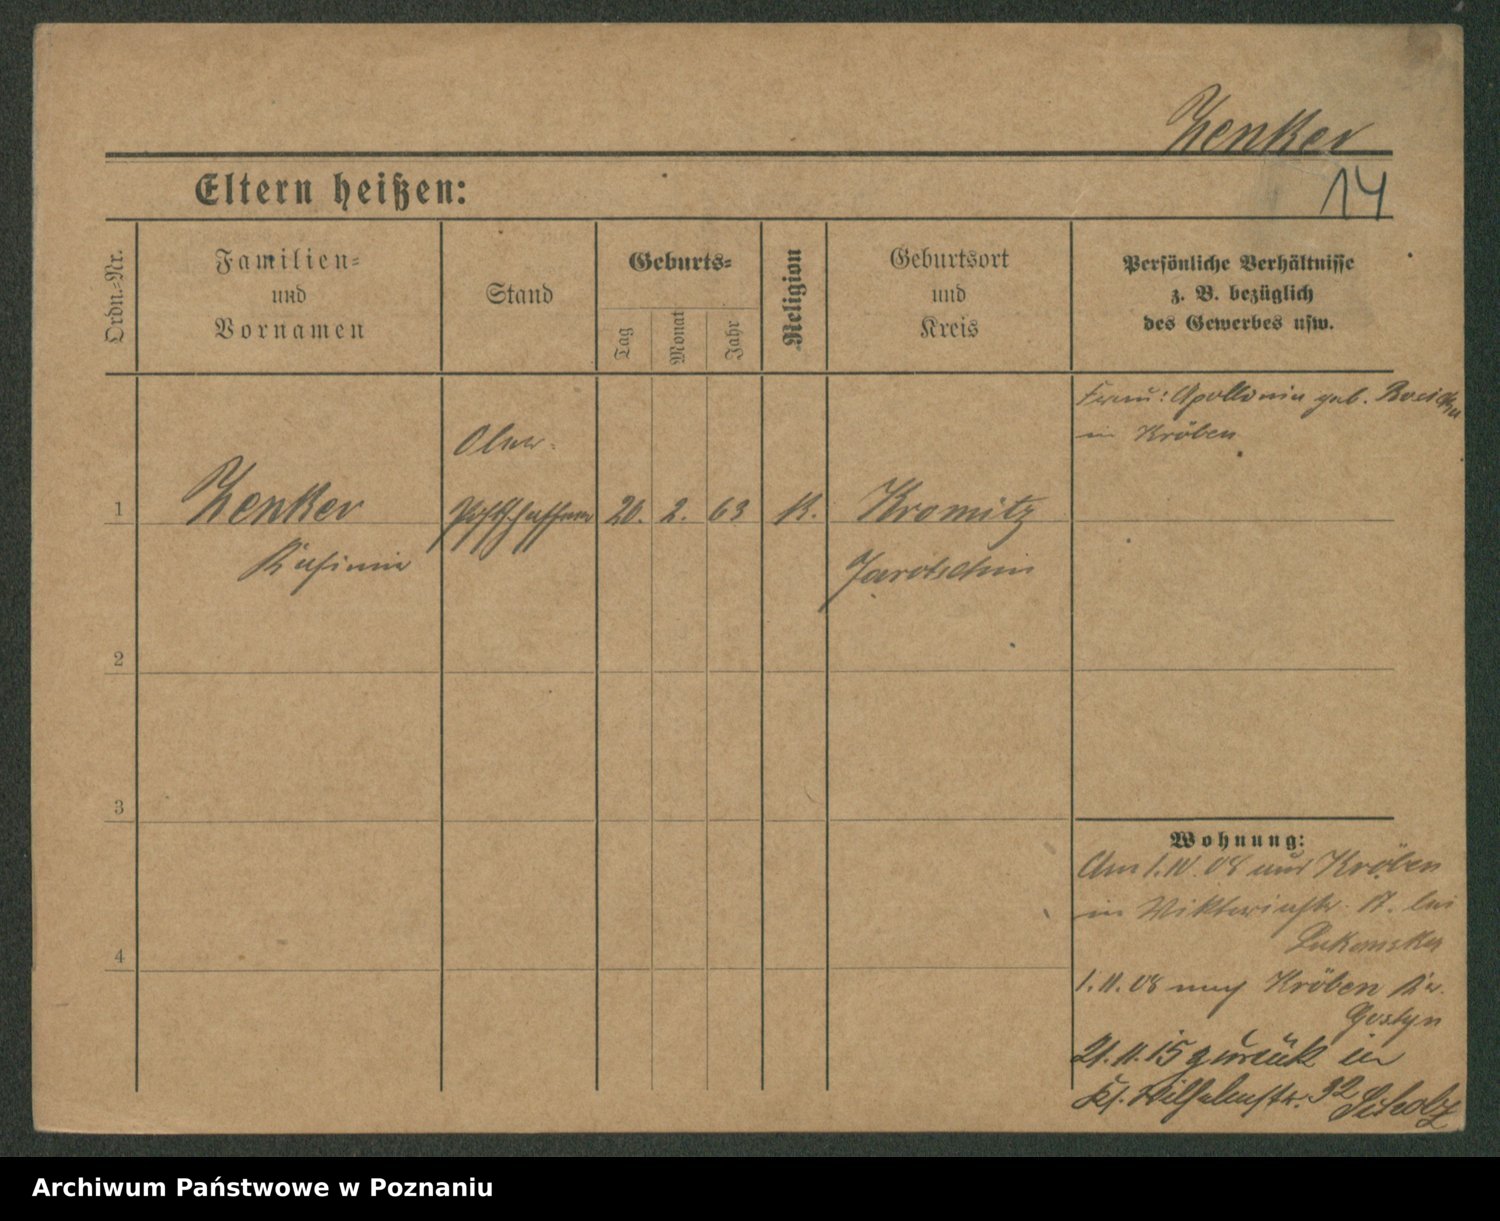 Zenker
Eltern heißen:
14
Ordn.-Nr.
Familien-
und
Vornamen
Stand
Geburts-
Tag
Monat
Jahr
Religion
Geburtsort
und
Kreis
Persönliche Verhältnisse
z. B. bezüglich
des Gewerbes usw.
Frau: Apollonia geb.
in Kröben
Ober-
1
Zenker
Postschaffner
20. 2. 63
K.
Kromitz
Kasimir
Jarotschin
2
3
4
Wohnung:
Am 1. IV. 08 aus Kröben
in Viktoriastr. 17. bei
1. 11. 08 nach Kröben Kr.
Gostyn
21. 11. 15 zurück in
Kl. Wilhelmstr. 32 Scholz
Archiwum Państwowe w Poznaniu